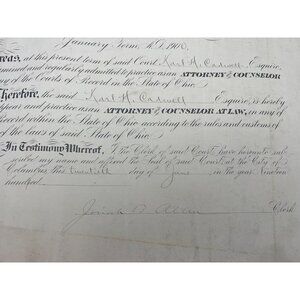 January Term, A.D. 190
reas, at this present term of said Court Karl H. Esquire,
mined and regularly admitted to practice as an ATTORNEY & COUNSELOR
ny of the Courts of Record in this State of Ohio.
Therefore, the said Karl H. Esquire, is hereby
pear and practice as an ATTORNEY & COUNSELOR AT LAW, in any of
Record within the State of Ohio according to the rules and customs of
the laws of said State of Ohio.
In Testimony Whereof, I the Clerk of said Court have hereunto sub-
scribed my name and affixed the Seal of said Court at the City of
Columbus this twentieth day of June in the year Nineteen
hundred
Josiah B. Allen Clerk